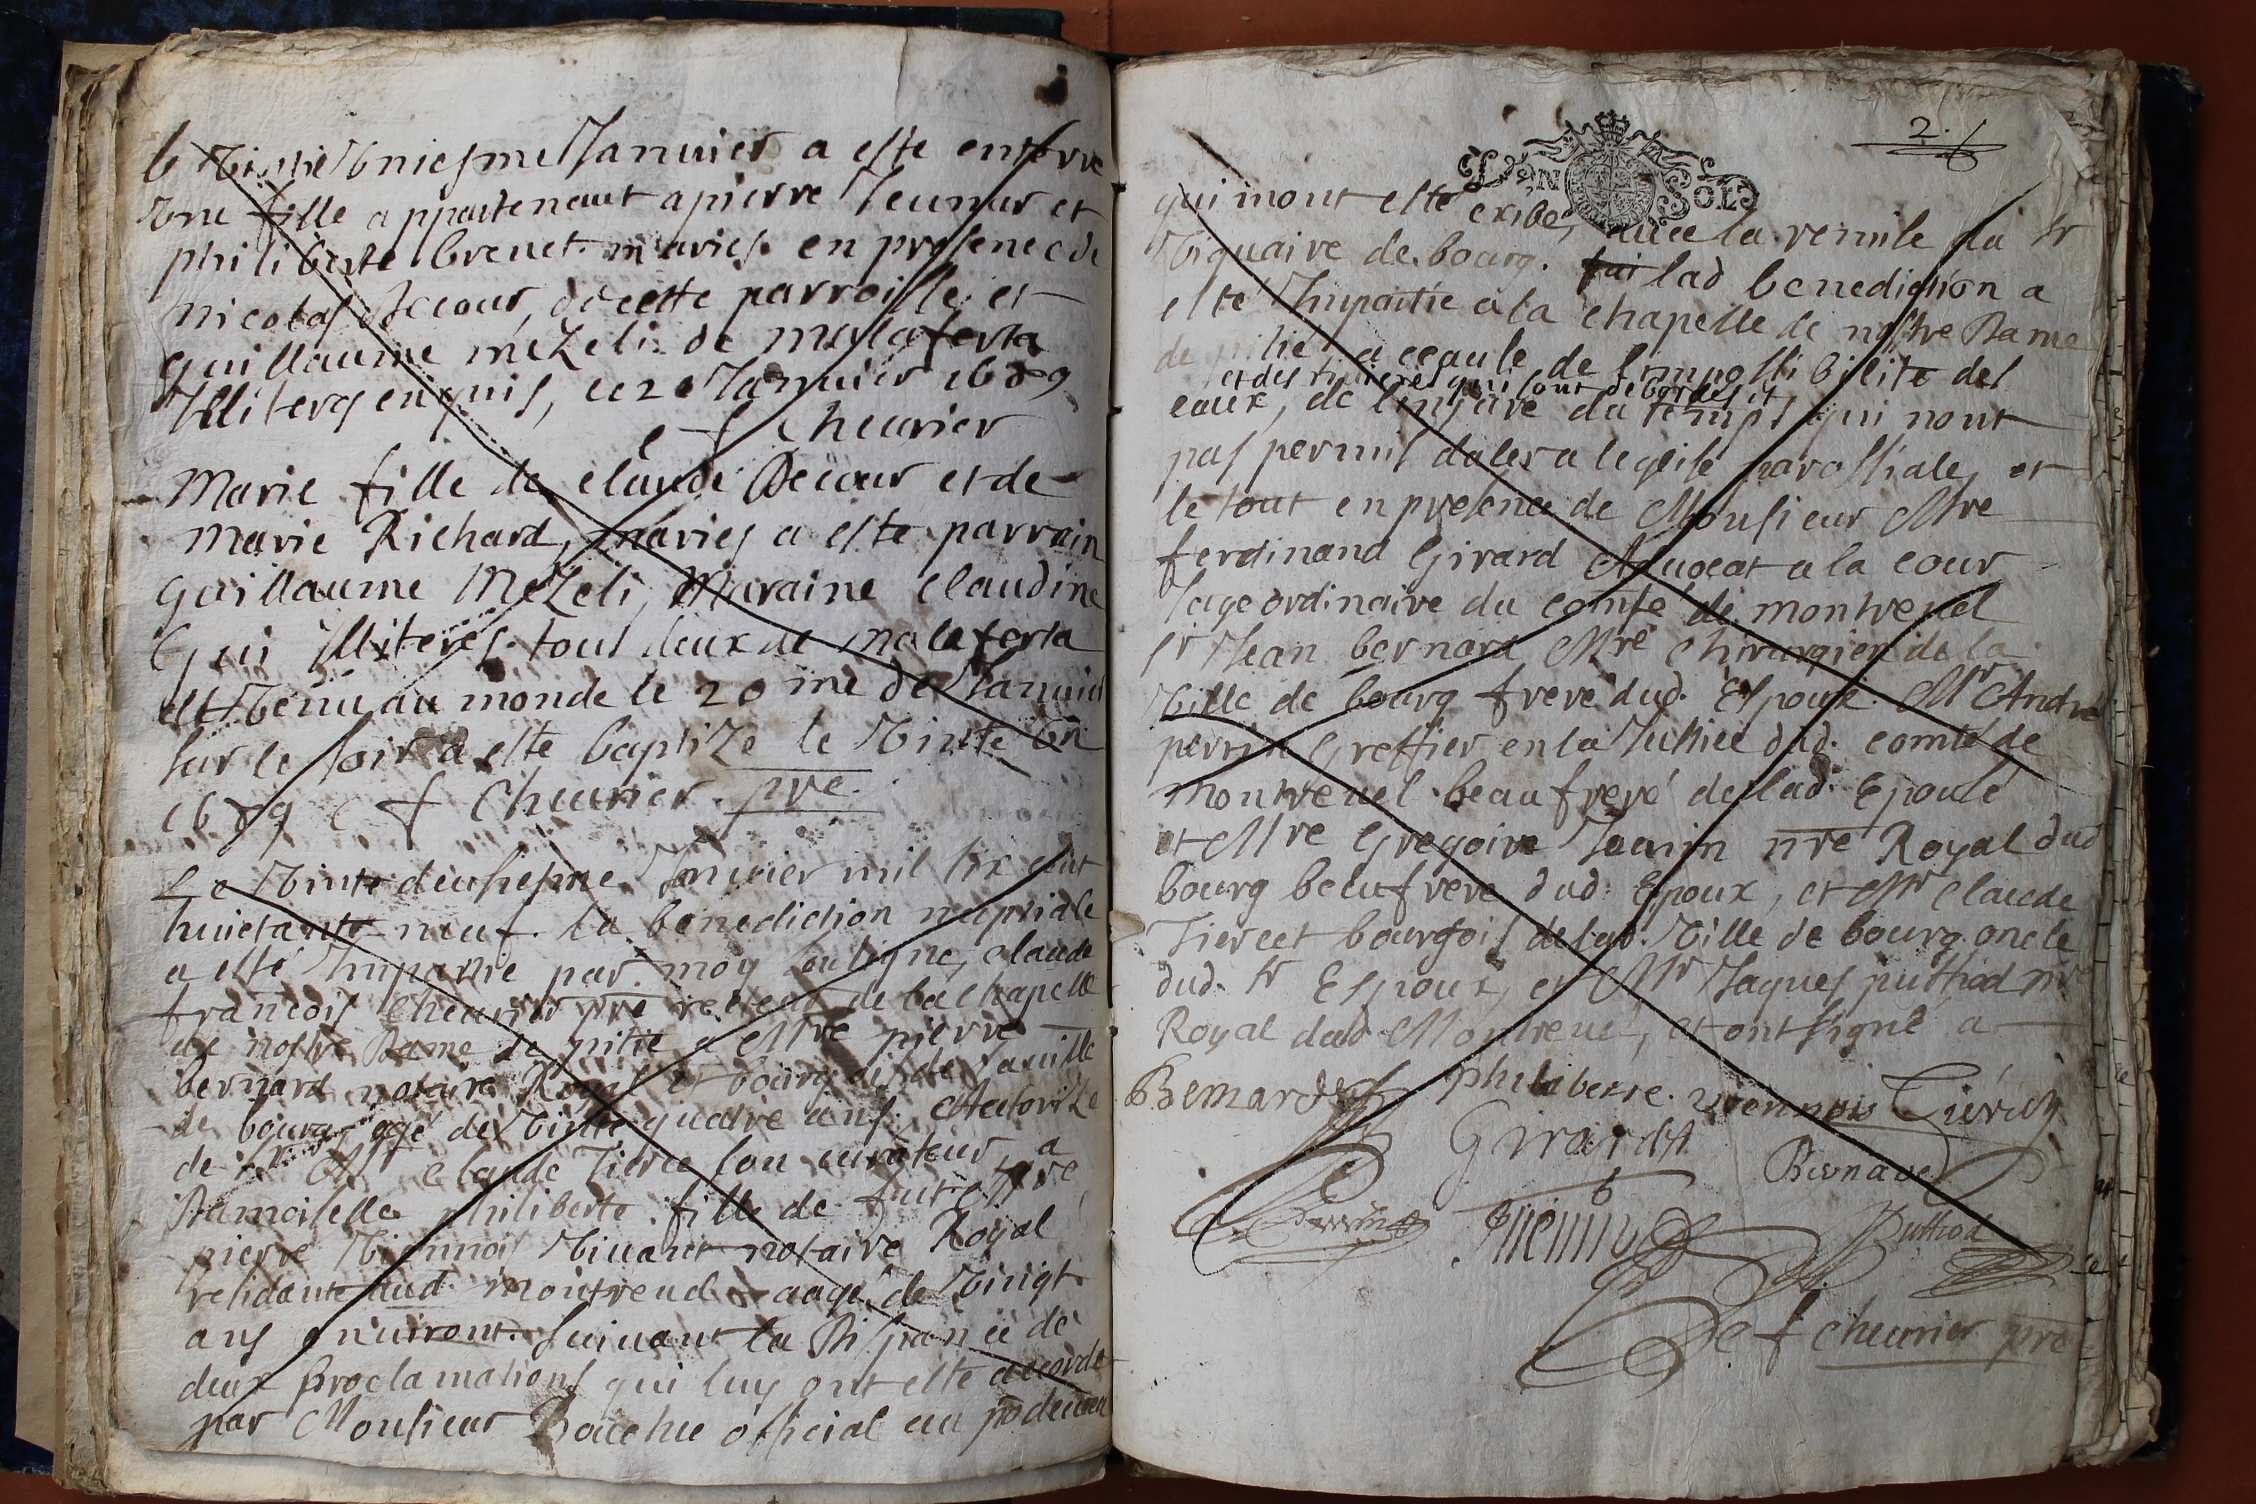 le Vintie Vniesme Januier a este enterre
Vne fille appartenant a pierre Jeunur et
philiberte brenet maries en presence de
nicolas Decour, de cette parroisse et
guillaume mézeli de malaferta
Illiteres enquis, ce 20 Januier 1689
c f cheurier
Marie fille de claude Decour et de
Marie Richard, maries a este parrain
guillaume Mezeli, Maraine claudine
Gui illiteres tous deux de malaferta
est Venu au monde le 20 me de Januier
sur le soir a este baptize le Vinte Vn
1689 c f Cheurier pre
Le Vinte deuxiesme Januier mil six cent
huictante neuf. la benediction nuptiale
a esté Impartie par moy soussigne, claude
françois Cheurier pre recteur de la chapelle
de nostre Dame de pitie a Mre pierre
bernard notaire Royal et bourgeois de la ville
de bourg, agé de Vinte quatre ans, Autorizé
de Mr claude Tierce son curateur, a
Damoiselle philiberte fille de fut Mre
pierre Viennois Viuant notaire Royal
residante aud. montreuel aagé de Vingt
ans enuiront suiuant la Dispance de
deux proclamations qui luy ont esté accordé
par Monsieur Bouchu official au
qui mont esté exibé, auec la remise du sr
DEN SOLS
2.
Viquaire de bourg. lad benediction a
esté Impartie a la chapelle de nostre Dame
de pitié a cause de limpossibilité des
et des riuieres qui sont debordes et
eaux, de linjure du temps qui nont
pas permis daler a leglise parossiale, et
le tout en presence de Monsieur Mre
ferdinand Girard Aduocat a la cour
Juge ordinaire du comté de montreuel
sr Jean bernard Mre chirurgien de la
Ville de bourg frere dud. Espoux Mr André
perrin Greffier en la Justice dud. comté de
Montreuel beaufreré de lad. Epouse
et Mre Gregoire Jeunin nre Royal dud
bourg beaufrere dud. Epoux, et Mr claude
Tierce et bourgois de lad. Ville de bourg oncle
dud. sr Espoux, et Mr Jaques puthod nre
Royal dud Montreuel, et ont signé a
Bernard philiberte. viennois Tiércy
Girard
Bernard
Perrin
Puthod
C f cheurier pre